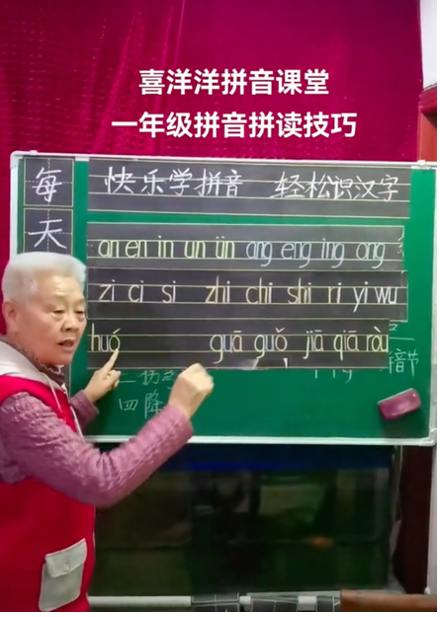 喜洋洋拼音课堂
一年级拼音拼读技巧
每天
快乐学拼音 轻松识汉字
an en in un ün ang eng ing ong
zi ci si zhi chi shi ri yi wu
huó guā guǒ jiā qiā
音节
四降